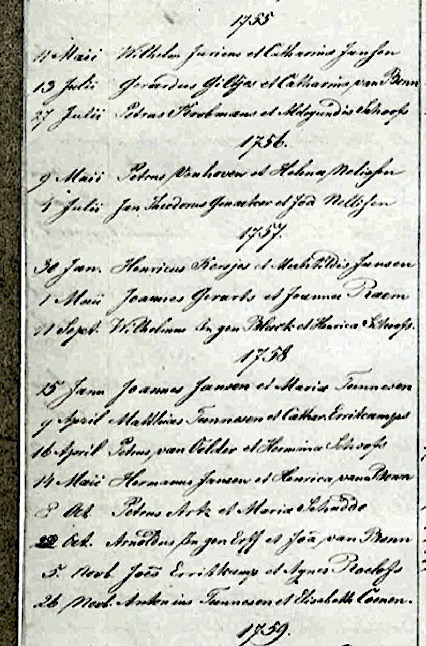 1755
11 Maii Wilhelm Juriens et Catharina Janssen
13 Julii Gerardus Giltjes et Catharina van Benn
27 Julii Petrus et Aldegundis Schoofs
1756.
9 Maii Petrus Venhoven et Helena Nelissen
4 Julii Jan Theodorus et Joa Nellissen
1757.
30 Jan. Henricus Kersjes et Mechtildis Jansen
1 Maii Joannes Gerarts et Joanna Praem
11 Sept. Wilhelmus In gen Bleeck et Henrica Schoofs.
1758
15 Janu Joannes Jansen et Maria Tunnesen
9 April Matthias Tunnesen et Cathar. Erritcamps
16 April Petrus van Oelder et Hermina Schoofs
14 Maii Hermanus Jansen et Henrica van Benn
8 Oct Petrus Artz et Maria
Oct. Arnoldus In gen Erff et Joa, van Benn
5. Novb Joes Erritkamp et Agnes Roelofs
26 Novb. Antonius Tunnesen et Elisabeth Coenen.
1759.